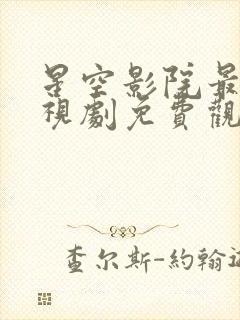 星空影院最
視劇免費觀
查尔斯-約翰